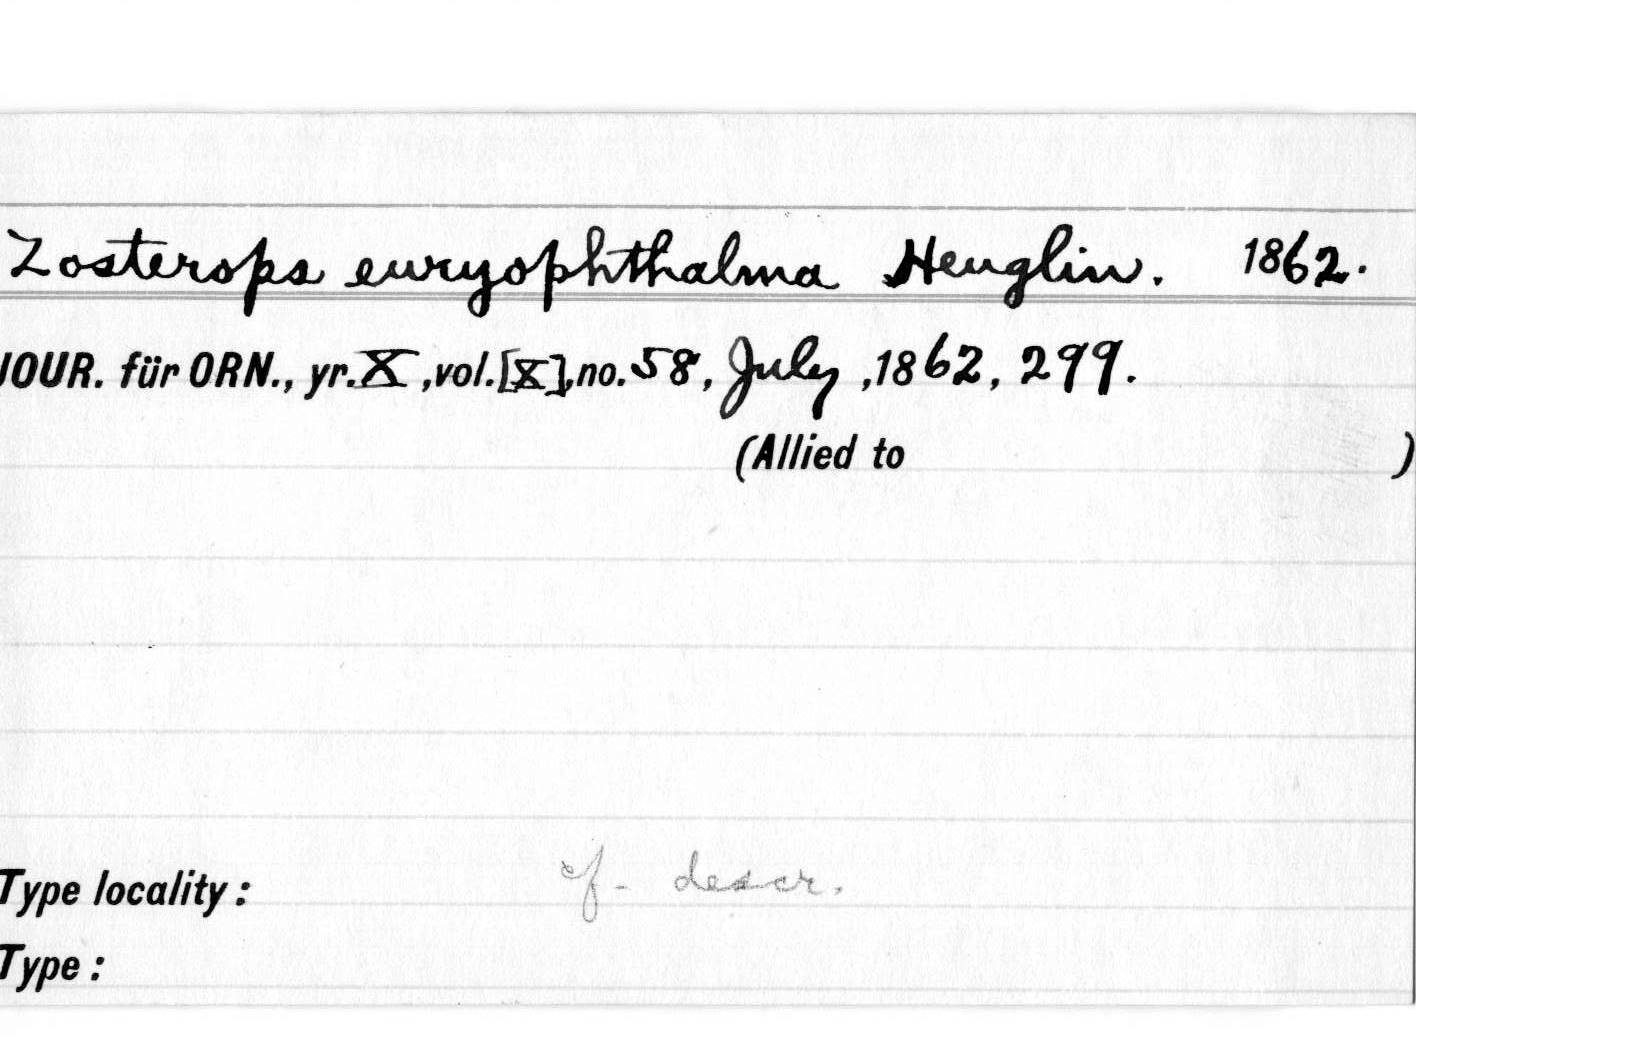 Zosterops euryophthalma Heuglin. 1862.
JOUR. für ORN., yr. X, vol. [X], no. 58, July, 1862, 299.
(Allied to )
Type locality: cf. descr.
Type: